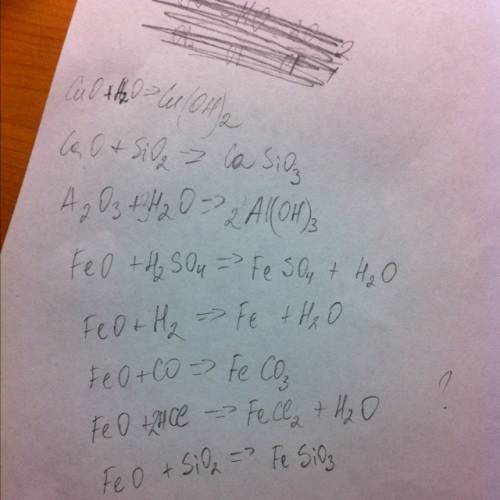 CuO + H2O => Cu(OH)2
CaO + SiO2 => CaSiO3
A2O3 + 3H2O => 2Al(OH)3
FeO + H2SO4 => FeSO4 + H2O
FeO + H2 => Fe + H2O
FeO + CO => FeCO3
FeO + 2HCl => FeCl2 + H2O ?
FeO + SiO2 => FeSiO3